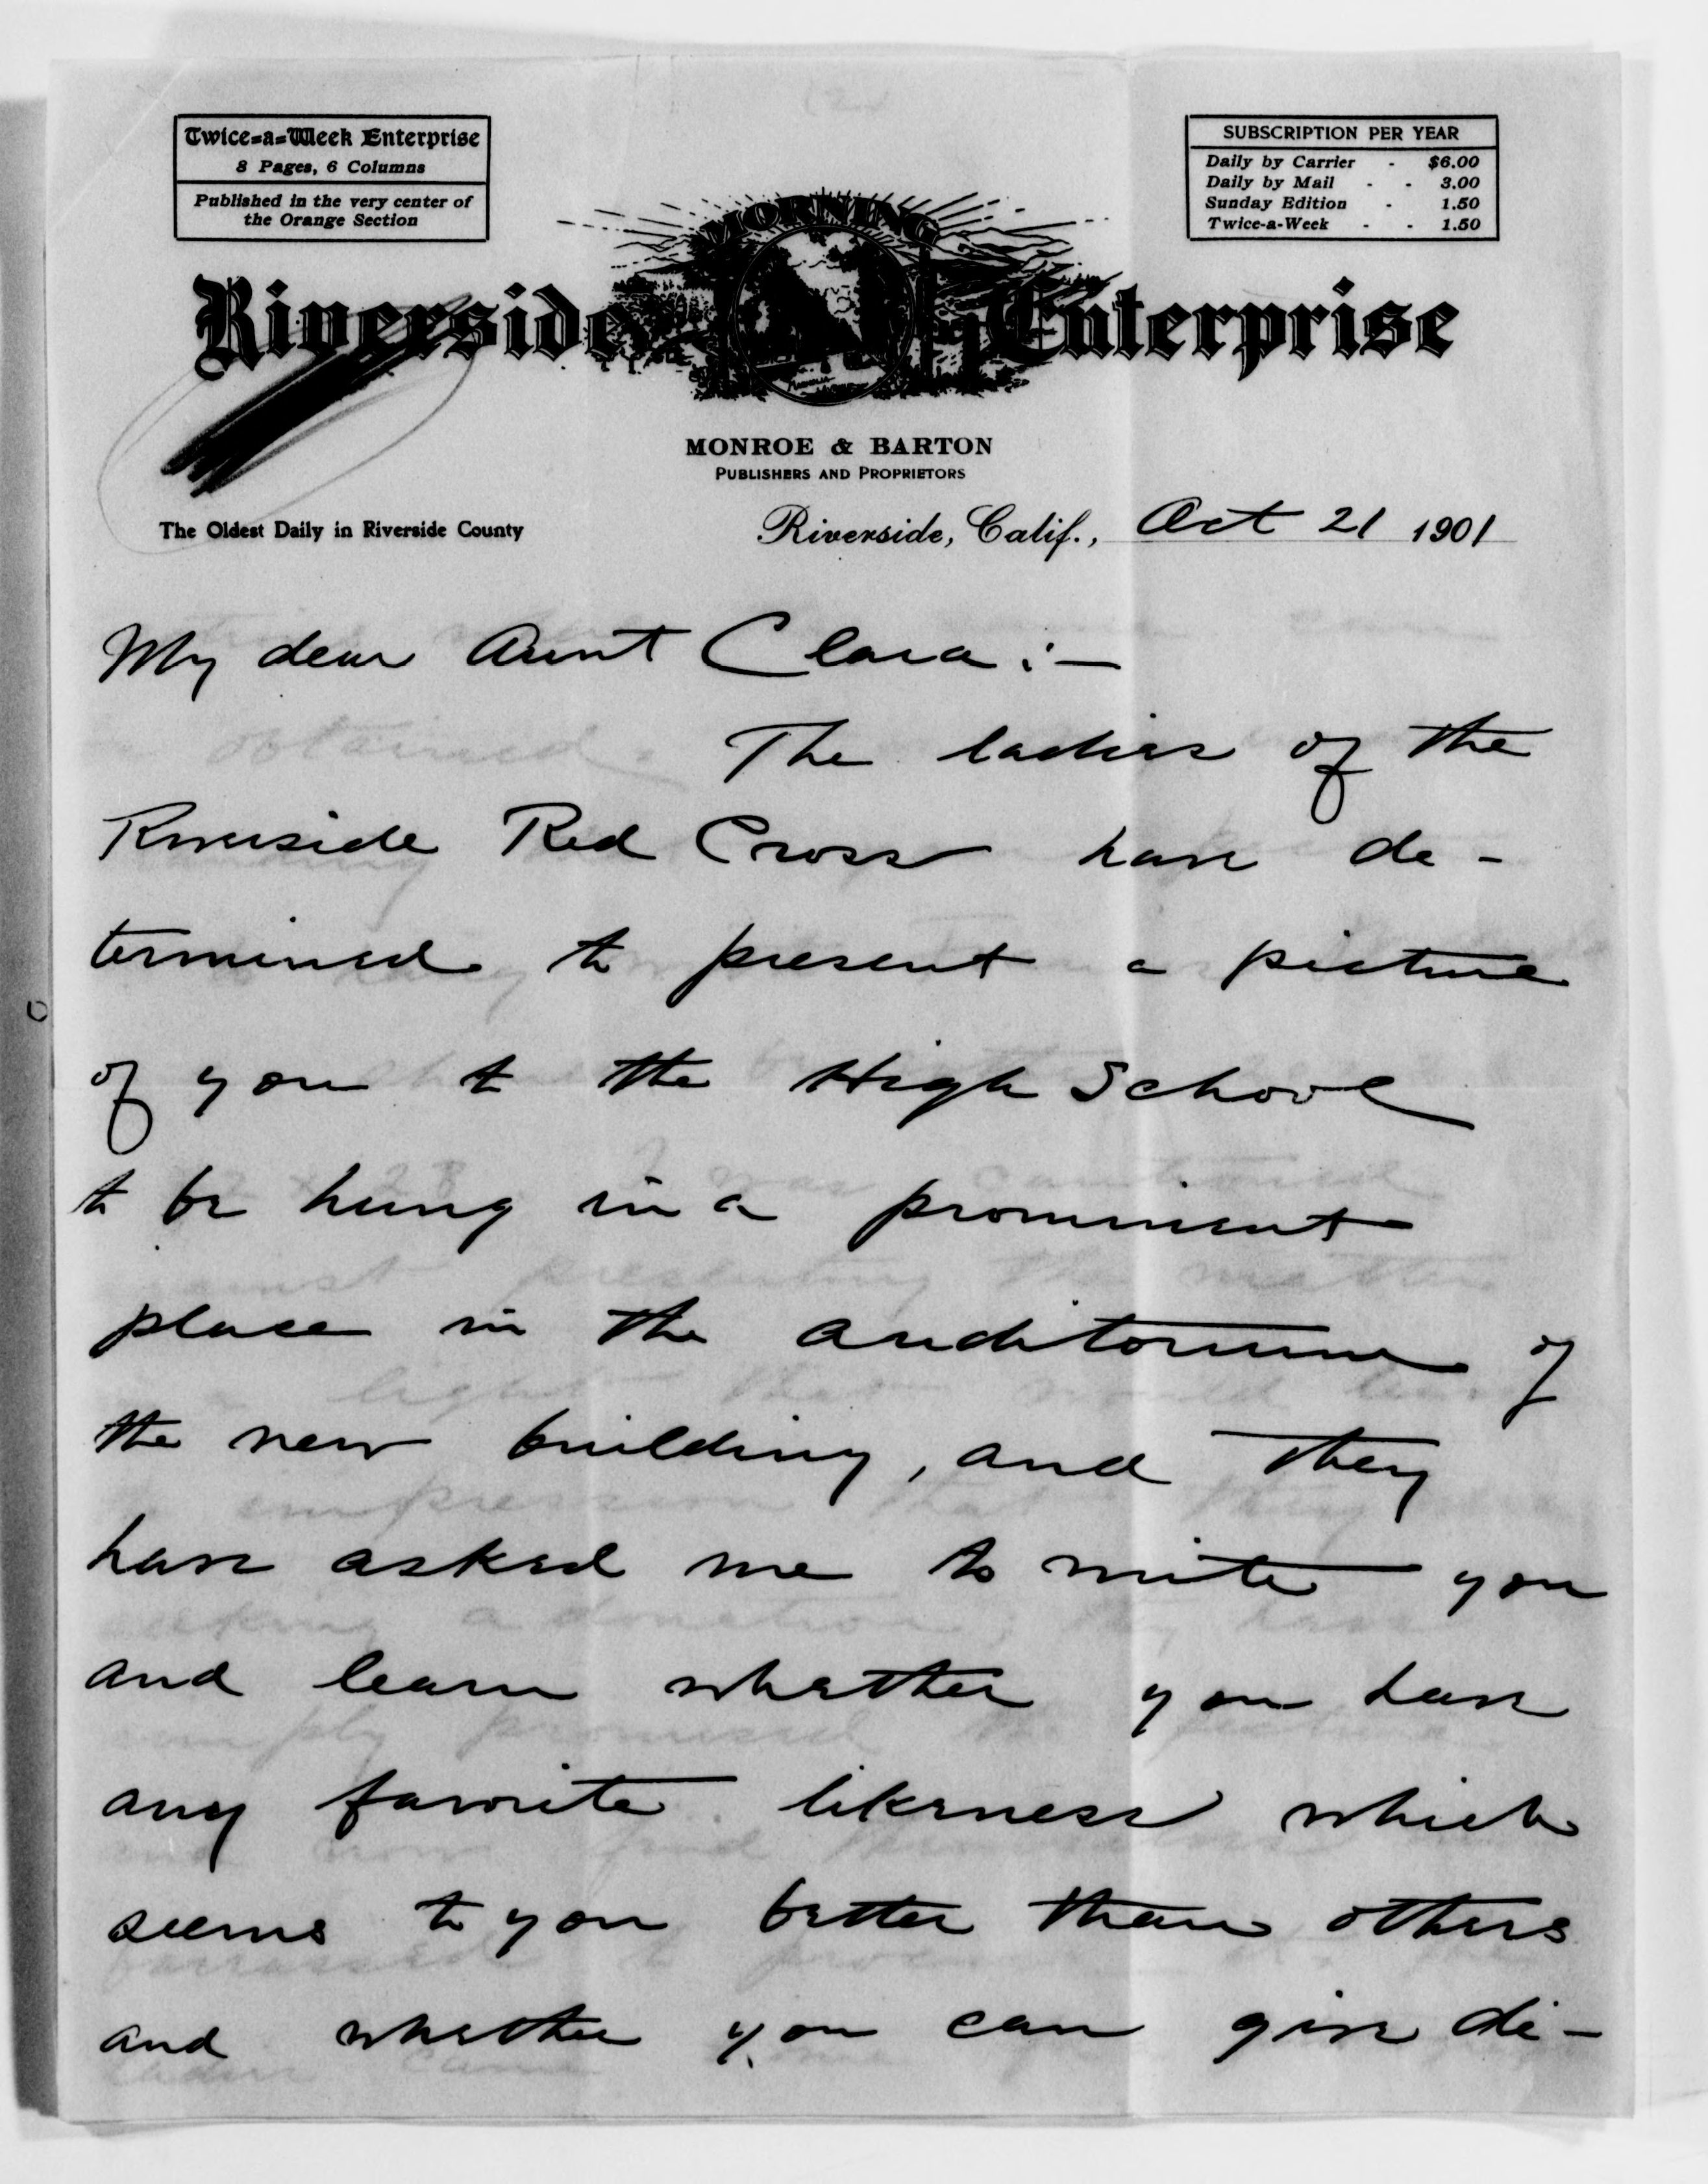 Twice-a-Week Enterprise
8 Pages, 6 Columns
Published in the very center of
the Orange Section
SUBSCRIPTION PER YEAR
Daily by Carrier - $6.00
Daily by Mail - - 3.00
Sunday Edition - 1.50
Twice-a-Week - - 1.50
MORNING
Riverside Enterprise
MONROE & BARTON
PUBLISHERS AND PROPRIETORS
The Oldest Daily in Riverside County
Riverside, Calif., Oct 21 1901
My dear Aunt Clara :—
The ladies of the
Riverside Red Cross have de-
termined to present a picture
of you to the High School
to be hung in a prominent
place in the auditorium of
the new building, and they
have asked me to write you
and learn whether you have
any favorite likeness which
seems to you better than others
and whether you can give di-